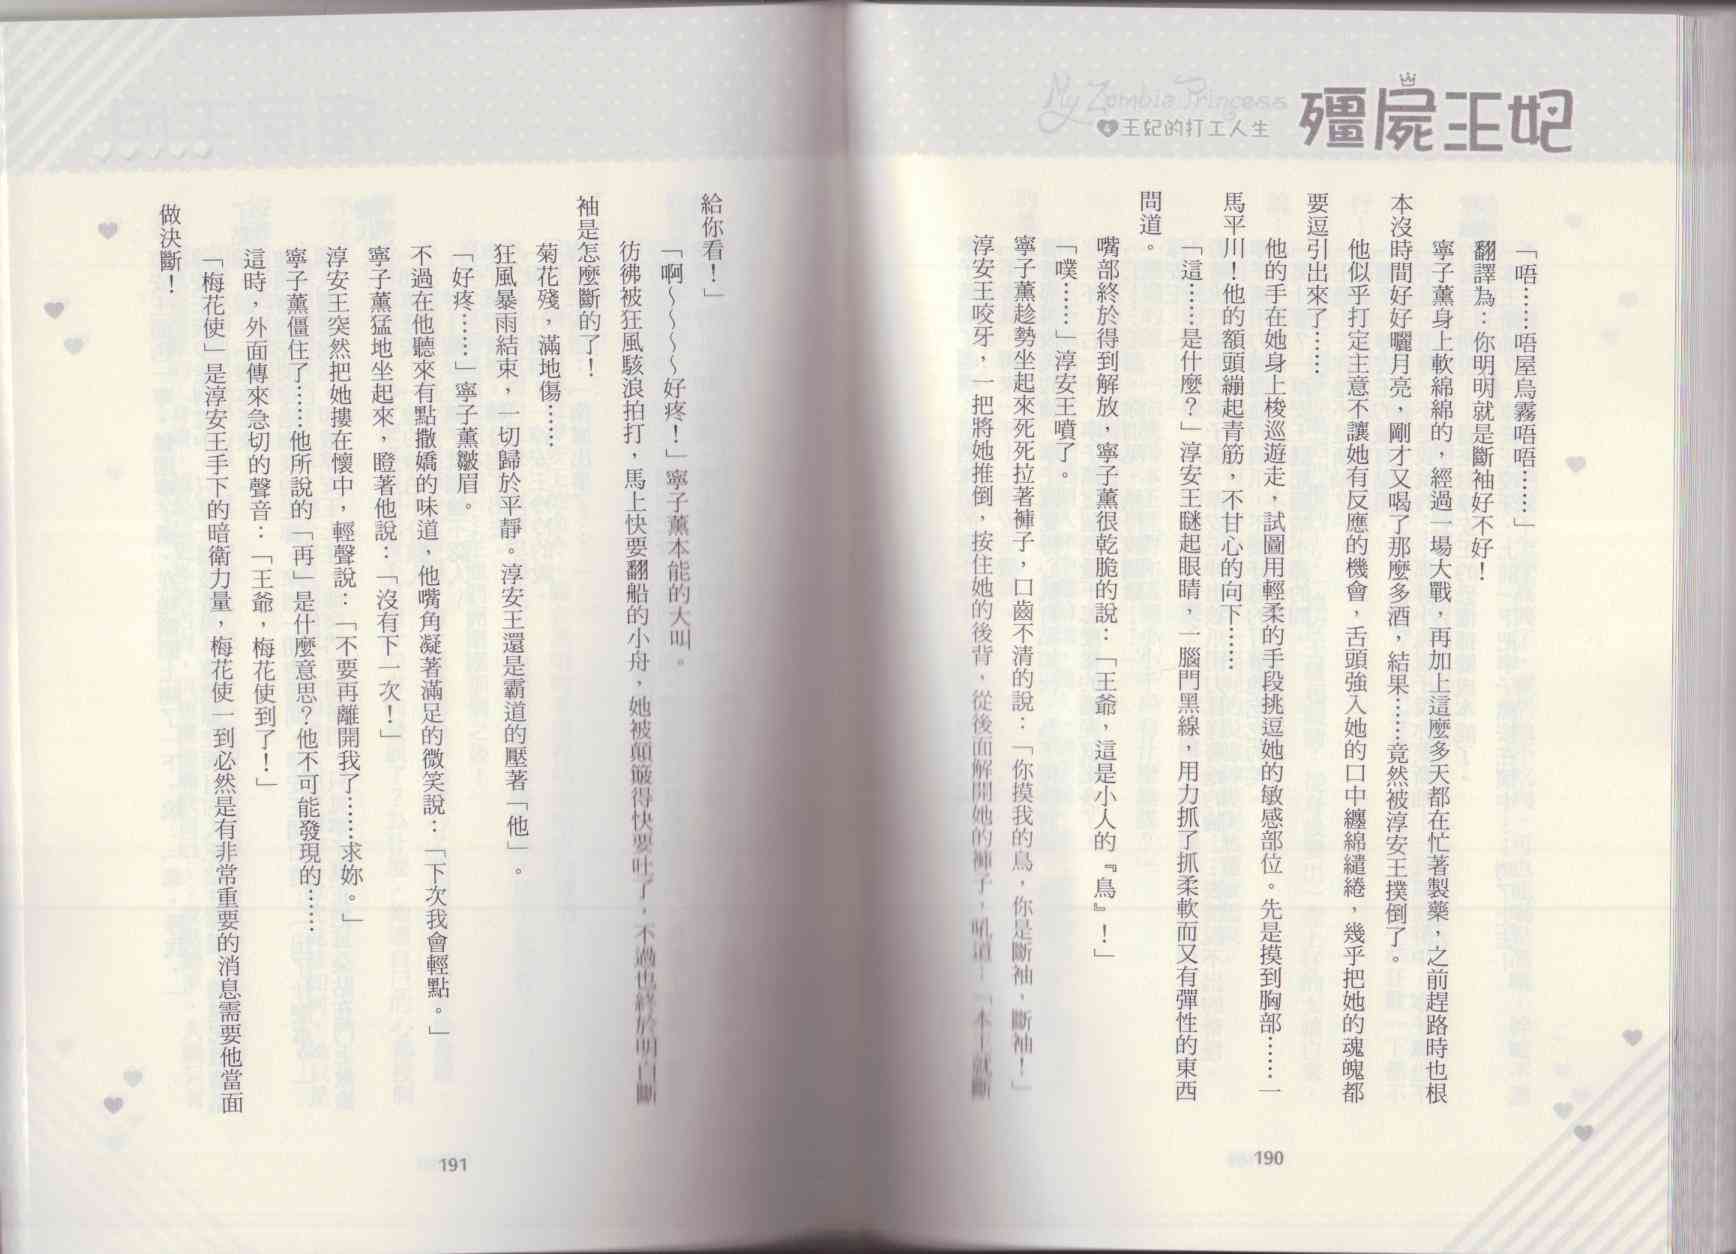 殭屍王妃
My Zombie Princess
王妃的打工人生
「唔……唔屋烏霧唔唔……」
翻譯為：你明明就是斷袖好不好！
寧子薰身上軟綿綿的，經過一場大戰，再加上這麼多天都在忙著製藥，之前趕路時也根
本沒時間好好曬月亮，剛才又喝了那麼多酒，結果……竟然被淳安王撲倒了。
他似乎打定主意不讓她有反應的機會，舌頭強入她的口中纏綿繾綣，幾乎把她的魂魄都
要逗引出來了……
他的手在她身上梭巡遊走，試圖用輕柔的手段挑逗她的敏感部位。先是摸到胸部……一
馬平川！他的額頭繃起青筋，不甘心的向下……
「這……是什麼？」淳安王瞇起眼睛，一腦門黑線，用力抓了抓柔軟而又有彈性的東西
問道。
嘴部終於得到解放，寧子薰很乾脆的說：「王爺，這是小人的『鳥』！」
「噗……」淳安王噴了。
寧子薰趁勢坐起來死死拉著褲子，口齒不清的說：「你摸我的鳥，你是斷袖、斷袖！」
淳安王咬牙，一把將她推倒，按住她的後背，從後面解開她的褲子，吼道：「本王就斷
190
給你看！」
「啊～～～～好疼！」寧子薰本能的大叫。
彷彿被狂風駭浪拍打，馬上快要翻船的小舟，她被顛簸得快要吐了，不過也終於明白斷
袖是怎麼斷的了！
菊花殘，滿地傷……
狂風暴雨結束，一切歸於平靜。淳安王還是霸道的壓著「他」。
「好疼……」寧子薰皺眉。
不過在他聽來有點撒嬌的味道，他嘴角凝著滿足的微笑說：「下次我會輕點。」
寧子薰猛地坐起來，瞪著他說：「沒有下一次！」
淳安王突然把她摟在懷中，輕聲說：「不要再離開我了……求妳。」
寧子薰僵住了……他所說的「再」是什麼意思？他不可能發現的……
這時，外面傳來急切的聲音：「王爺，梅花使到了！」
「梅花使」是淳安王手下的暗衛力量，梅花使一到必然是有非常重要的消息需要他當面
做決斷！
191